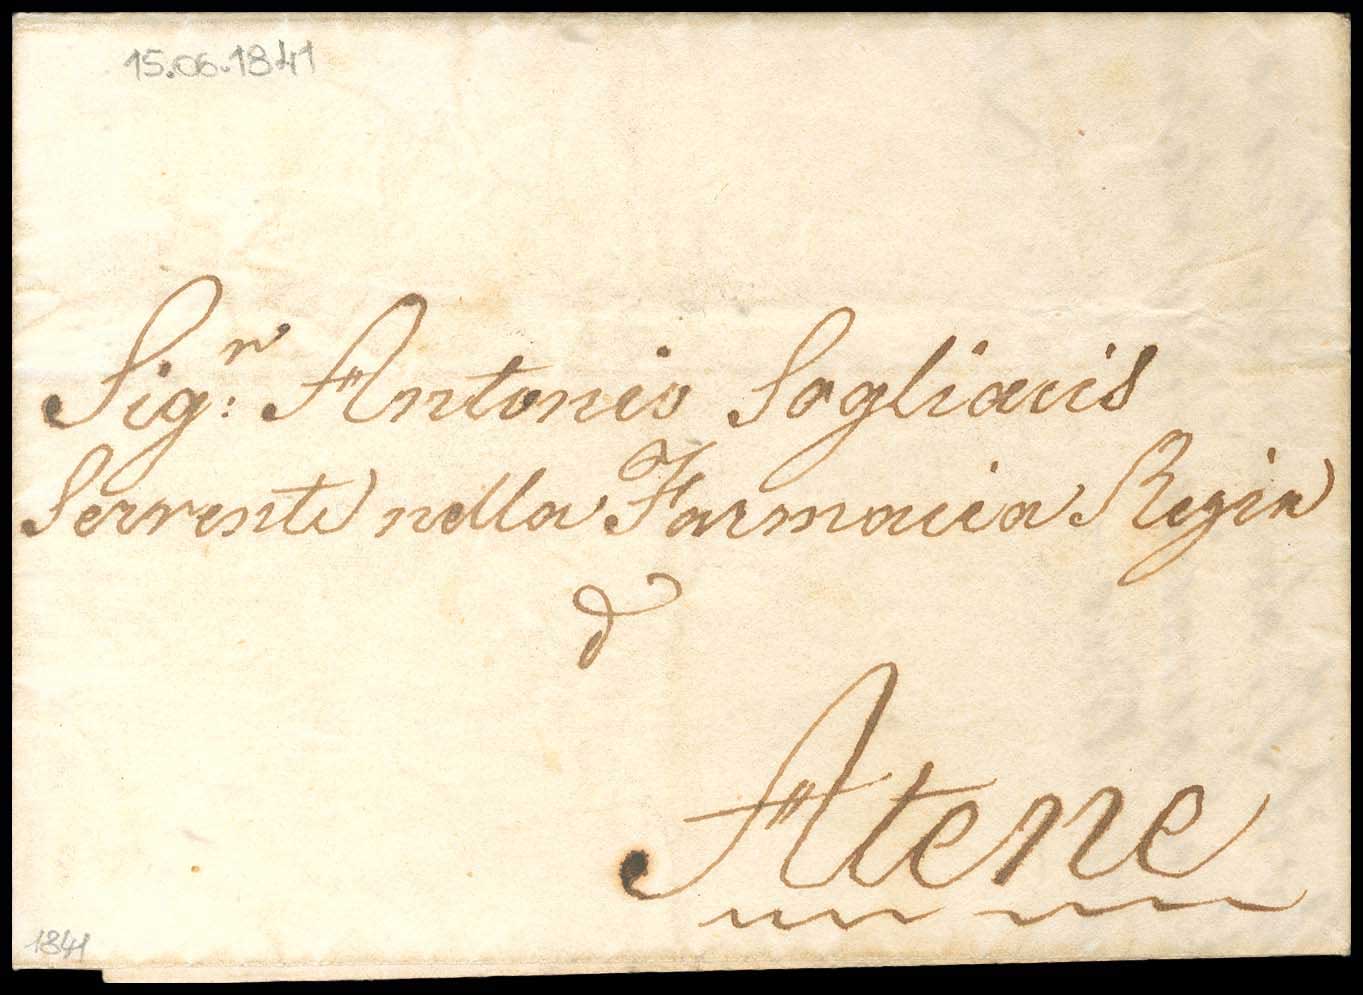 15.06.1841
Sigr: Antonio Sogliacis
Servente nella Farmacia Regia
d
Atene
1841